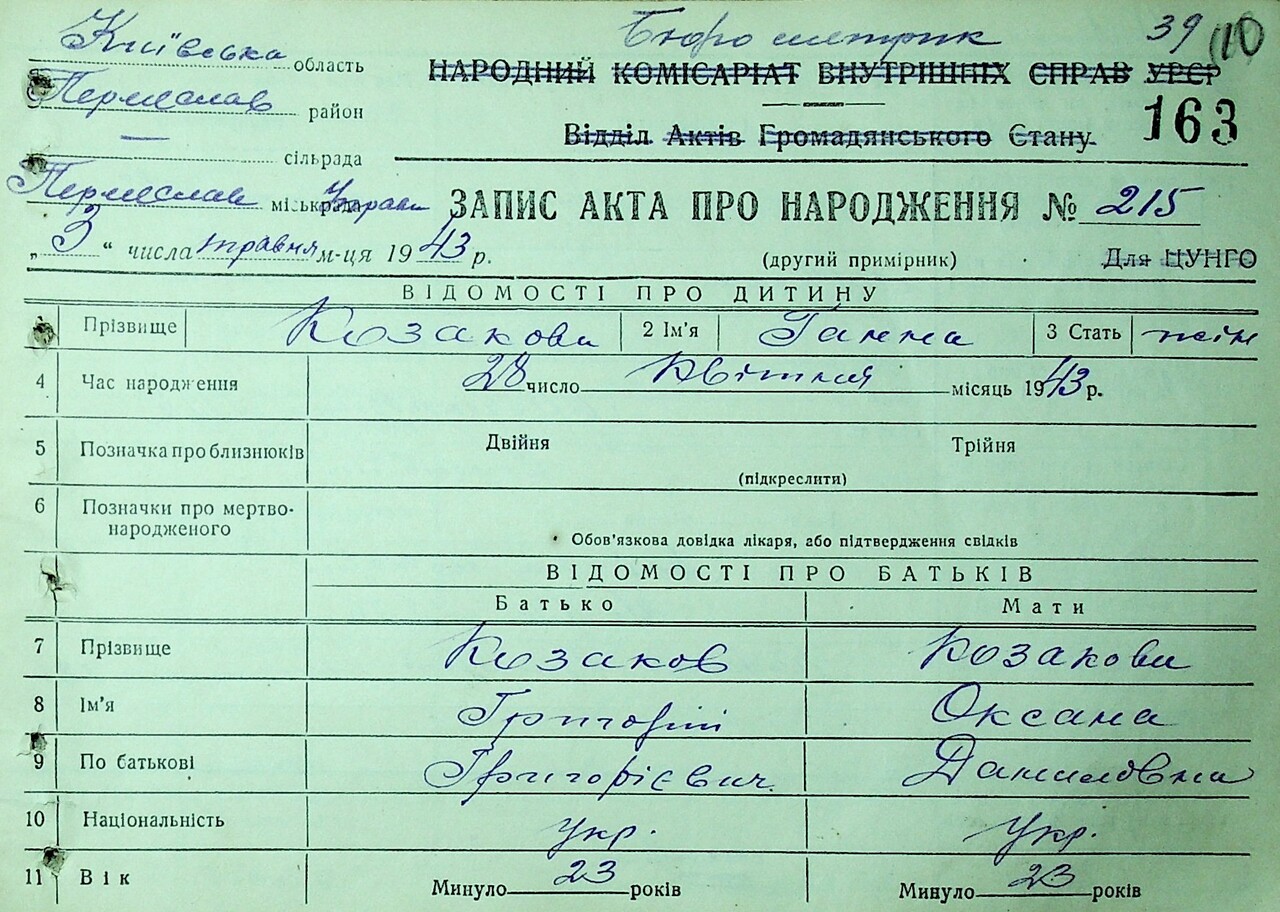 Київська область
Бюро метрик 39 (10)
НАРОДНИЙ КОМІСАРІАТ ВНУТРІШНІХ СПРАВ УРСР
Пермеслав район
Відділ Актів Громадянського Стану. 163
— сільрада
Пермеслав міськрада Управи
ЗАПИС АКТА ПРО НАРОДЖЕННЯ № 215
„ 3 “ числа травня м-ця 1943 р.
(другий примірник) Для ЦУНГО
ВІДОМОСТІ ПРО ДИТИНУ
Прізвище Козакова 2 Ім'я Ганна 3 Стать жін
4 Час народження 28 число Квітня місяць 1943 р.
5 Позначка про близнюків Двійня Трійня
(підкреслити)
6 Позначки про мертво-
народженого
Обов'язкова довідка лікаря, або підтвердження свідків
ВІДОМОСТІ ПРО БАТЬКІВ
Батько Мати
7 Прізвище Козаков Козакова
8 Ім'я Григорій Оксана
9 По батькові Григорієвич. Даниловна
10 Національність укр. Укр.
11 Вік Минуло 23 років Минуло 23 років